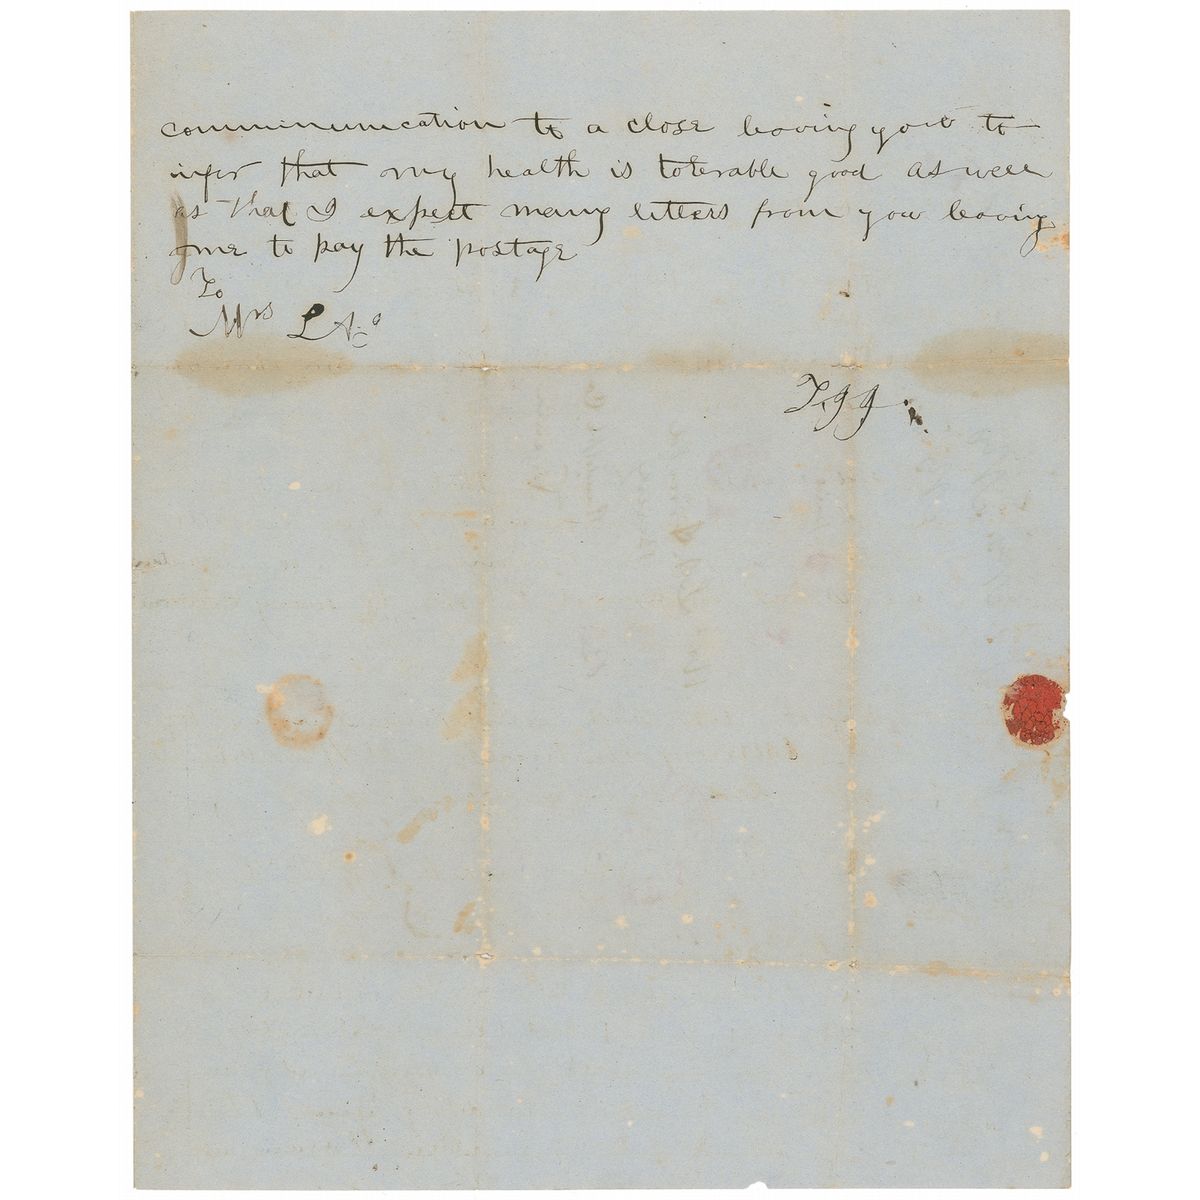 communication to a close leaving you to
infer that my health is tolerable good as well
as that I expect many letters from you leaving
me to pay the postage
To
Mrs L A.
T. J J.